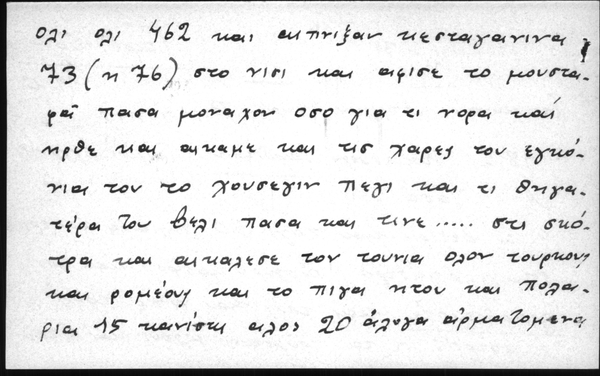 ολι ολι 462 και αιπνιξαν κεσταγανινα
73 (η 76) στο νισι και αφισε το μουστα-
φαϊ πασα μοναχον οσο για τι νορα καί
ηρθε και αικαμε και τις χαρες του εγκό-
νια του το χουσεγιν πεγι και τι θηγα-
τέρα του βελι πασα και τινε ..... στι σκό-
τρα και αικαλεσε τον τουνια ολον τουρκους
και ρομέους και το πιγα ητον και πολα-
ρια 15 κανίστι αλος 20 άλογα άρματομενα